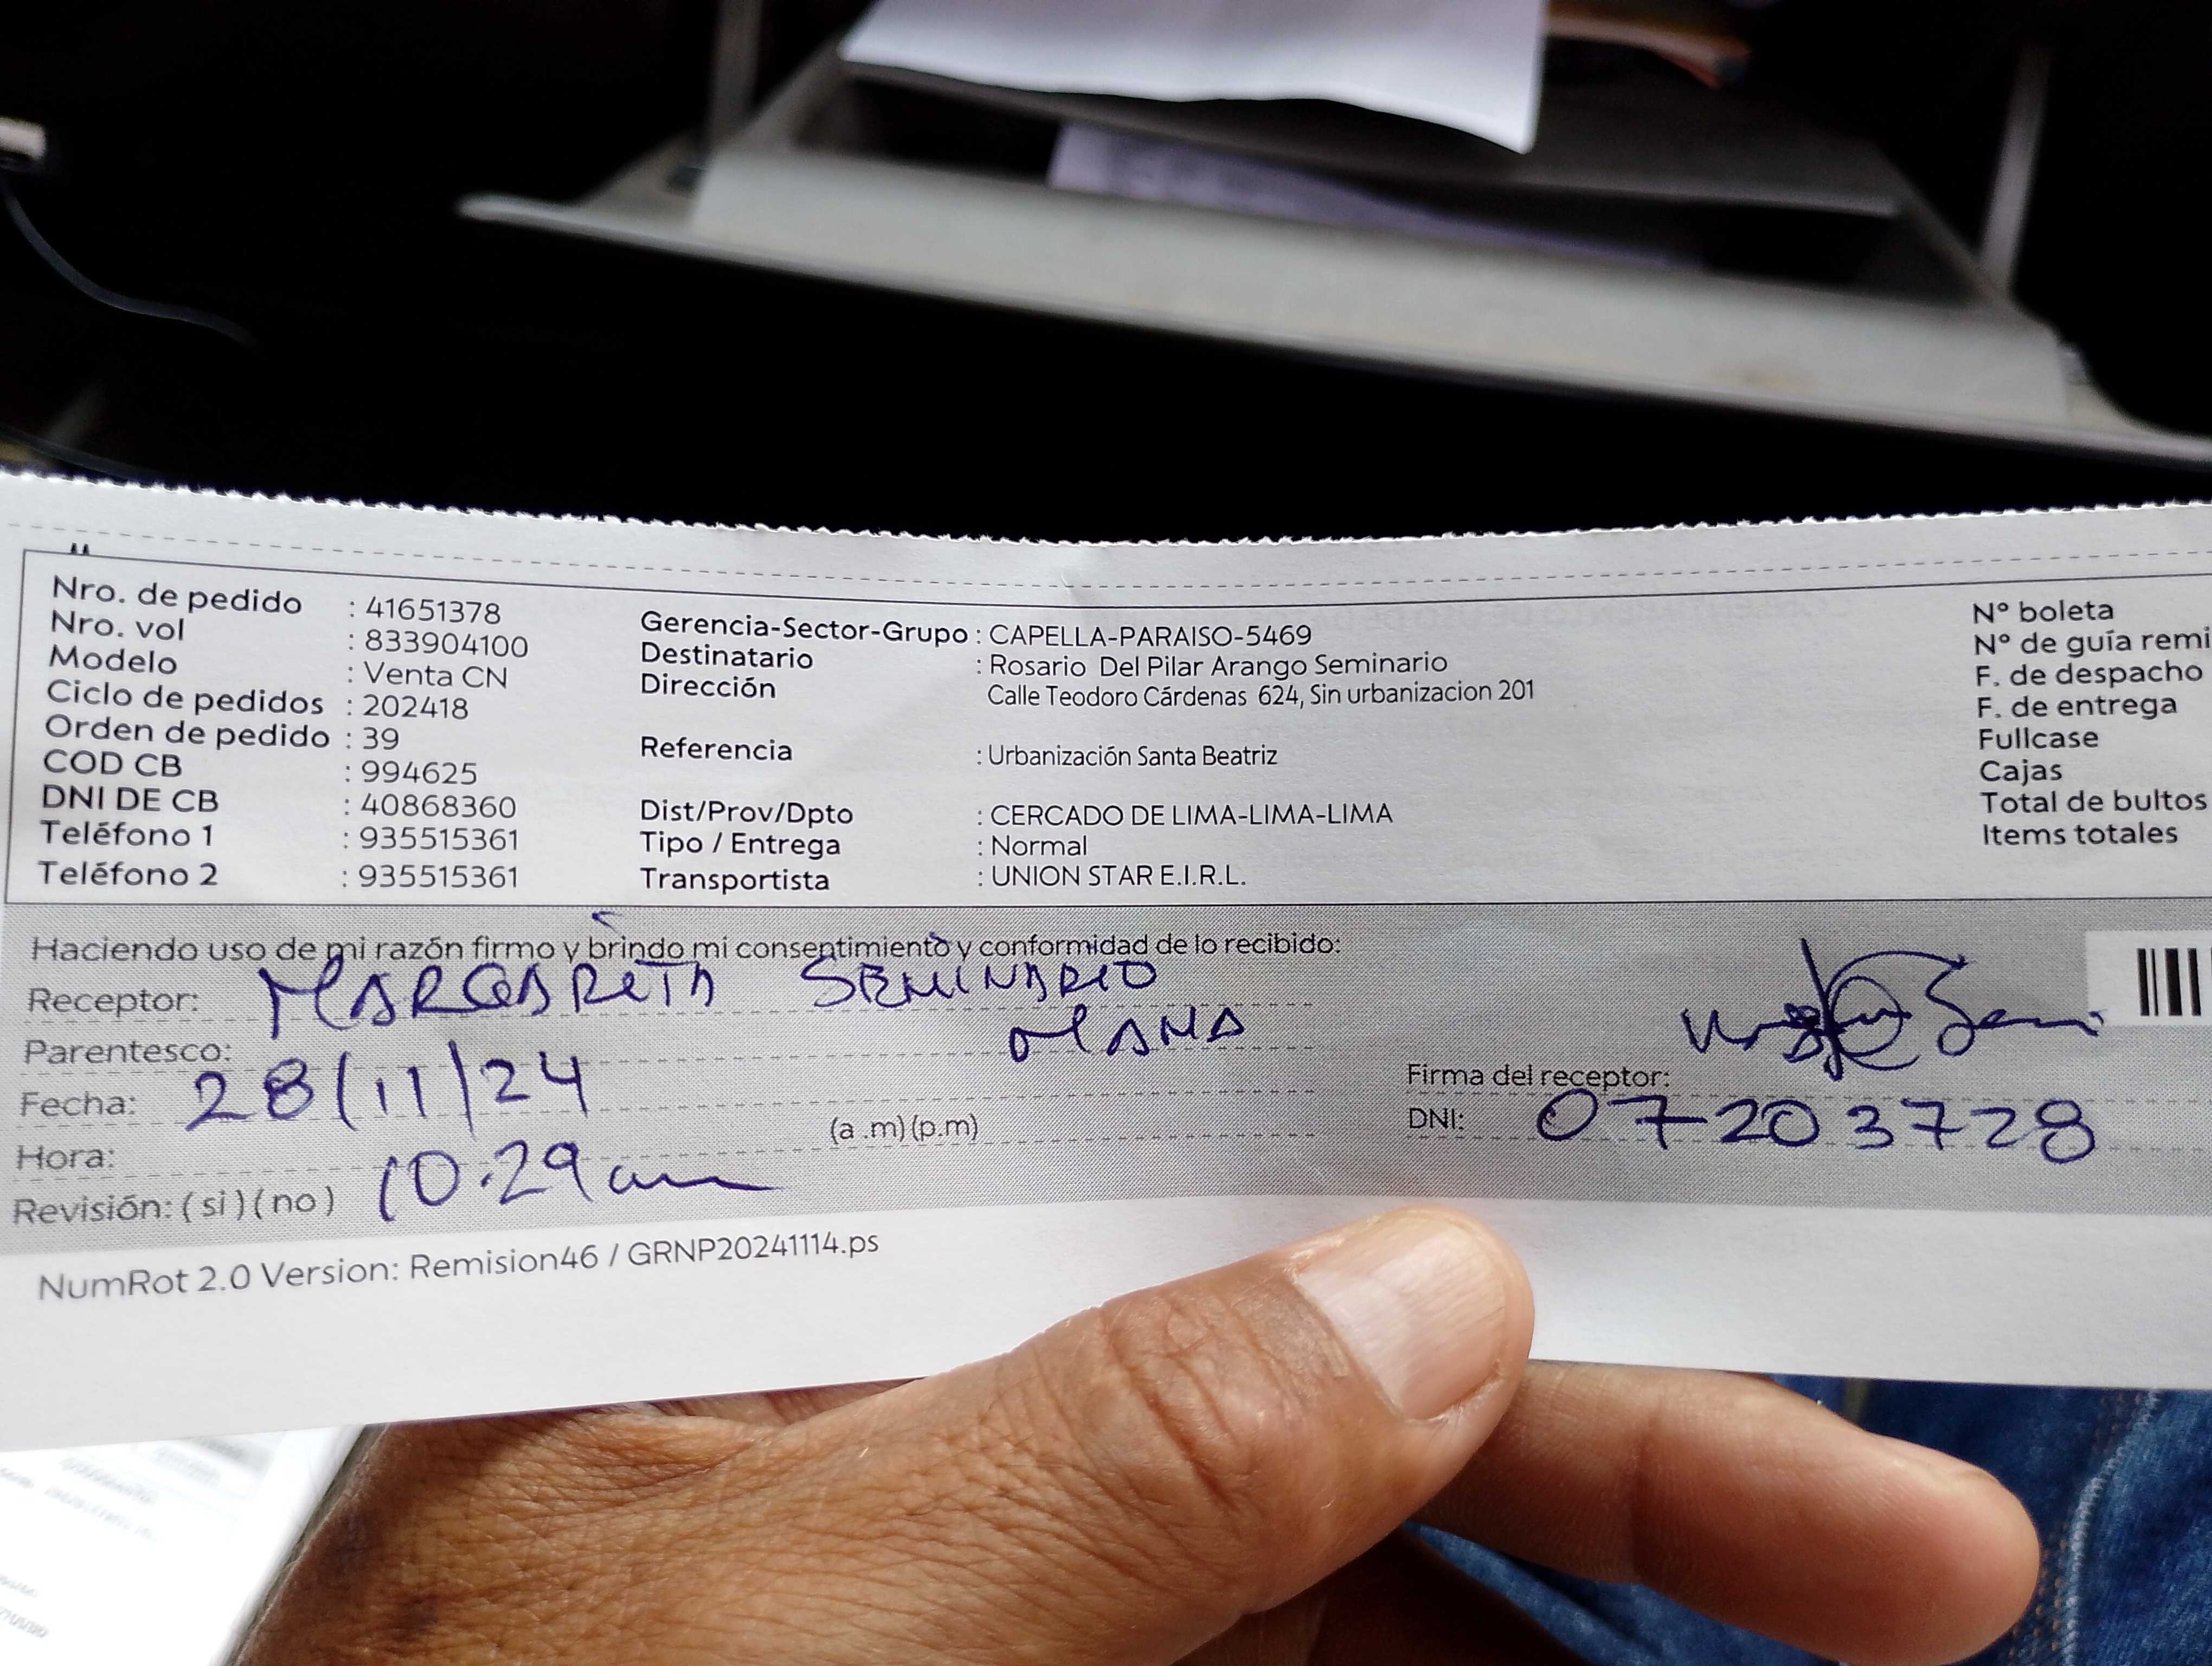 Nro. de pedido : 41651378
Nro. vol : 833904100
Modelo : Venta CN
Ciclo de pedidos : 202418
Orden de pedido : 39
COD CB : 994625
DNI DE CB : 40868360
Teléfono 1 : 935515361
Teléfono 2 : 935515361
Gerencia-Sector-Grupo : CAPELLA-PARAISO-5469
Destinatario : Rosario Del Pilar Arango Seminario
Dirección Calle Teodoro Cárdenas 624, Sin urbanizacion 201
Referencia : Urbanización Santa Beatriz
Dist/Prov/Dpto : CERCADO DE LIMA-LIMA-LIMA
Tipo / Entrega : Normal
Transportista : UNION STAR E.I.R.L.
N° boleta
N° de guía remi
F. de despacho
F. de entrega
Fullcase
Cajas
Total de bultos
Items totales
Haciendo uso de mi razón firmo y brindo mi consentimiento y conformidad de lo recibido:
Receptor: MARGARITA SEMINARIO
Parentesco: MAMA
Fecha: 28/11/24
Hora: 10.29am (a .m)(p.m)
Revisión: ( si ) ( no )
Firma del receptor:
DNI: 07203728
NumRot 2.0 Version: Remision46 / GRNP20241114.ps